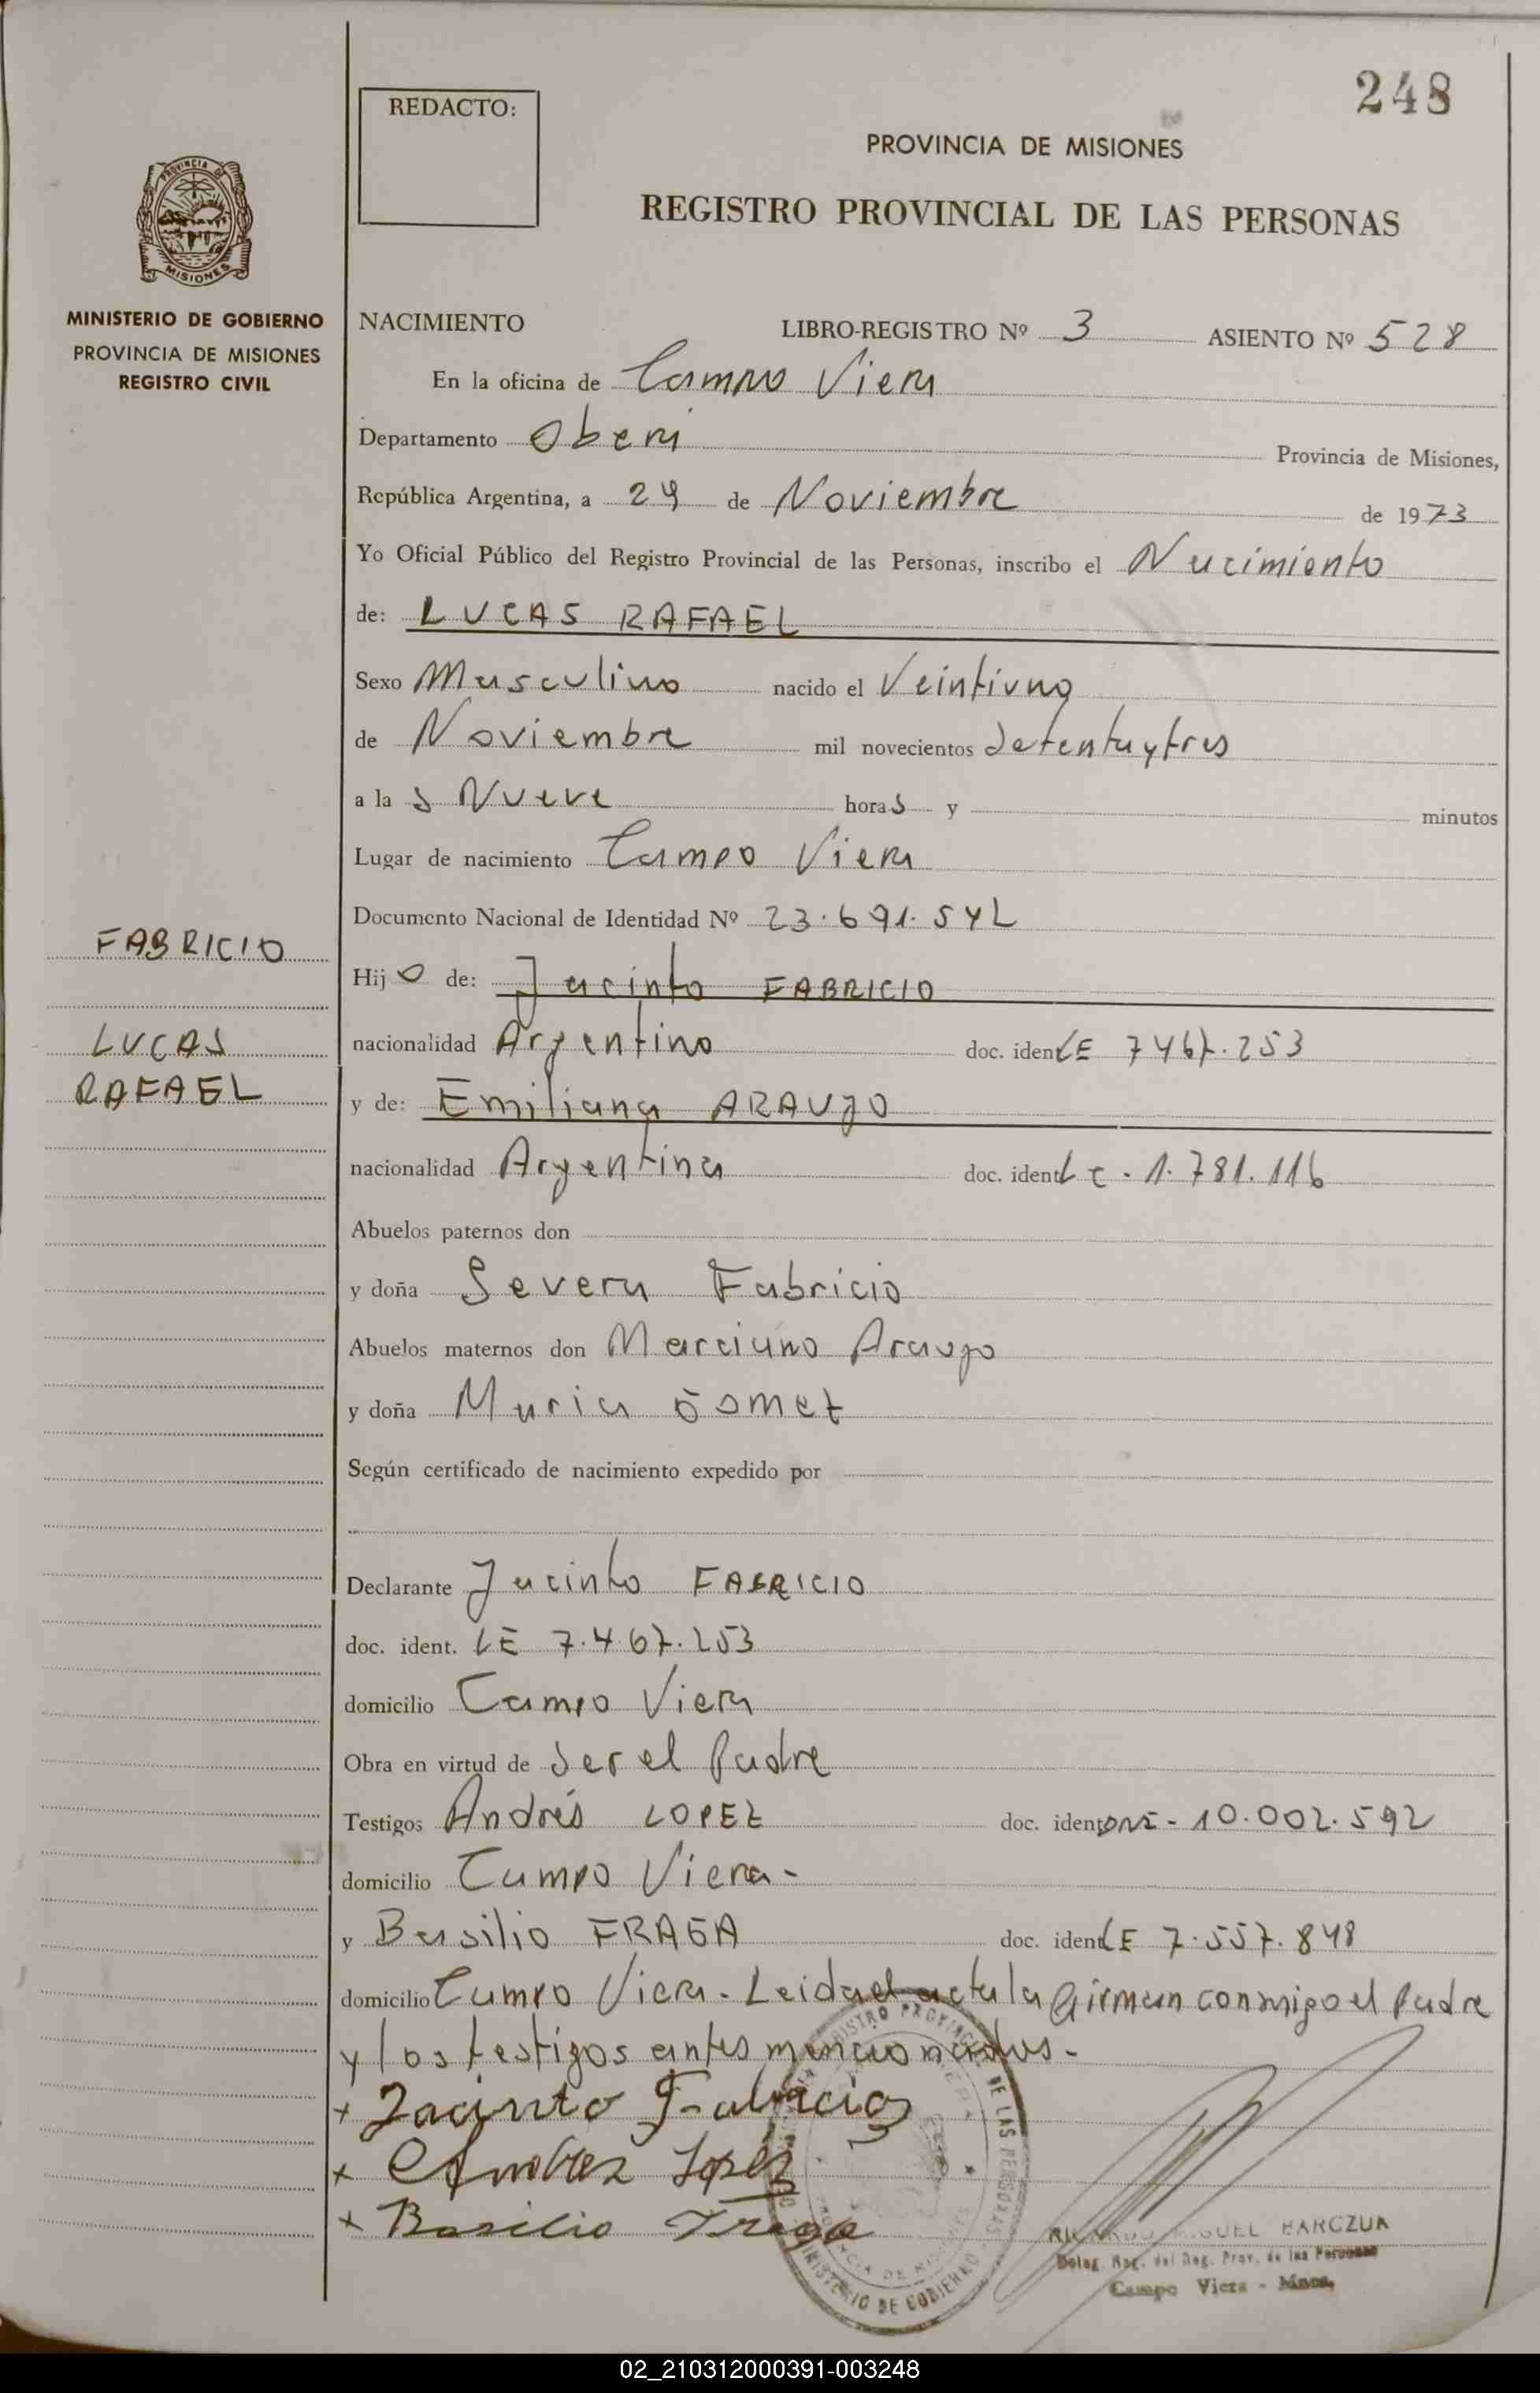 248
REDACTO:
PROVINCIA DE MISIONES
REGISTRO PROVINCIAL DE LAS PERSONAS
PROVINCIA DE
MISIONES
MINISTERIO DE GOBIERNO
PROVINCIA DE MISIONES
REGISTRO CIVIL
NACIMIENTO LIBRO-REGISTRO Nº 3 ASIENTO Nº 528
En la oficina de Campo Viera
Departamento Oberá Provincia de Misiones,
República Argentina, a 29 de Noviembre de 1973
Yo Oficial Público del Registro Provincial de las Personas, inscribo el Nacimiento
de: LUCAS RAFAEL
Sexo Masculino nacido el Veintiuno
de Noviembre mil novecientos setentaytres
a la s Nueve horas y minutos
Lugar de nacimiento Campo Viera
Documento Nacional de Identidad Nº 23.691.542
FABRICIO
LUCAS
RAFAEL
Hijo de: Jacinto FABRICIO
nacionalidad Argentino doc. ident LE 7467.253
y de: Emiliana ARAUJO
nacionalidad Argentina doc. ident LC - 1.781.116
Abuelos paternos don
y doña Severa Fabricio
Abuelos maternos don Marciano Araujo
y doña Maria Gomez
Según certificado de nacimiento expedido por
Declarante Jacinto FABRICIO
doc. ident. LE 7.467.253
domicilio Campo Viera
Obra en virtud de ser el Padre
Testigos Andrés LOPEZ doc. ident DNI - 10.002.592
domicilio Campo Viera -
y Basilio FRAGA doc. ident LE 7.557.848
domicilio Campo Viera - Leida el acta la firman conmigo el Padre
y los testigos antes mencionados -
x Jacinto Fabricio
x Andrez Lopez
x Basilio Fraga
REGISTRO PROVINCIAL DE LAS PERSONAS
MINISTERIO DE GOBIERNO
RICARDO MIGUEL BARCZUK
Deleg. Reg. del Reg. Prov. de las Personas
Campo Viera - Mnes.
02_210312000391-003248